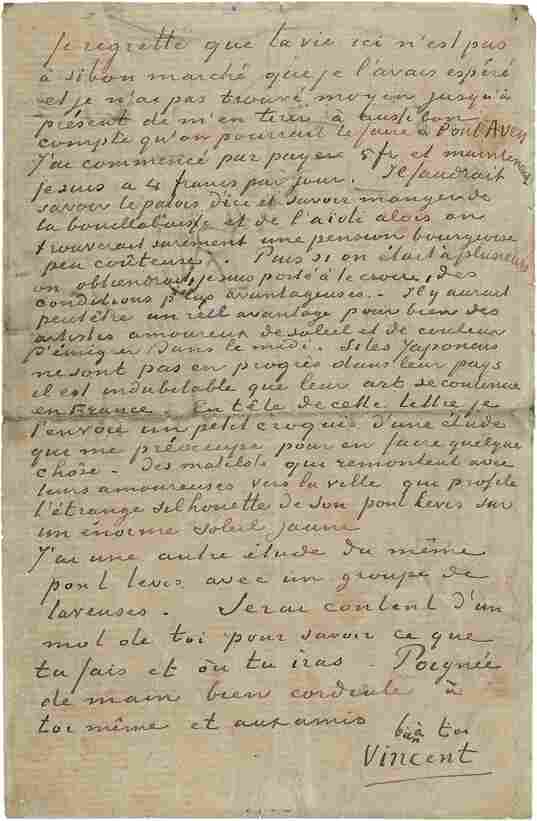 Je regrette que la vie ici n'est pas
à si bon marché que je l'avais espéré
et je n'ai pas trouvé moyen jusqu'à
présent de m'en tirer à aussi bon
compte qu'on pourrait le faire à Pont Aven
J'ai commencé par payer 5 fr et maintenant
je suis à 4 francs par jour. Il faudrait
savoir le patois d'ici et savoir manger de
la bouillabaisse et de l'aïoli alors on
trouverait surement une pension bourgeoise
peu coûteuse. Puis si on était à plusieurs
on obtiendrait, je suis porté à le croire, des
conditions plus avantageuses. Il y aurait
peutêtre un réel avantage pour bien des
artistes amoureux de soleil et de couleur
d'émigrer dans le midi. Si les Japonais
ne sont pas en progrès dans leur pays
il est indubitable que leur art se continue
en France. En tête de cette lettre je
t'envoie un petit croquis d'une étude
qui me préoccupe pour en faire quelque
chôse - des matelots qui remontent avec
leurs amoureuses vers la ville qui profile
l'étrange silhouette de son pont levis sur
un énorme soleil jaune
J'ai une autre étude du même
pont levis avec un groupe de
laveuses. Serai content d'un
mot de toi pour savoir ce que
tu fais et où tu iras. Poignée
de main bien cordiale à
toi même et aux amis
bien à toi
Vincent